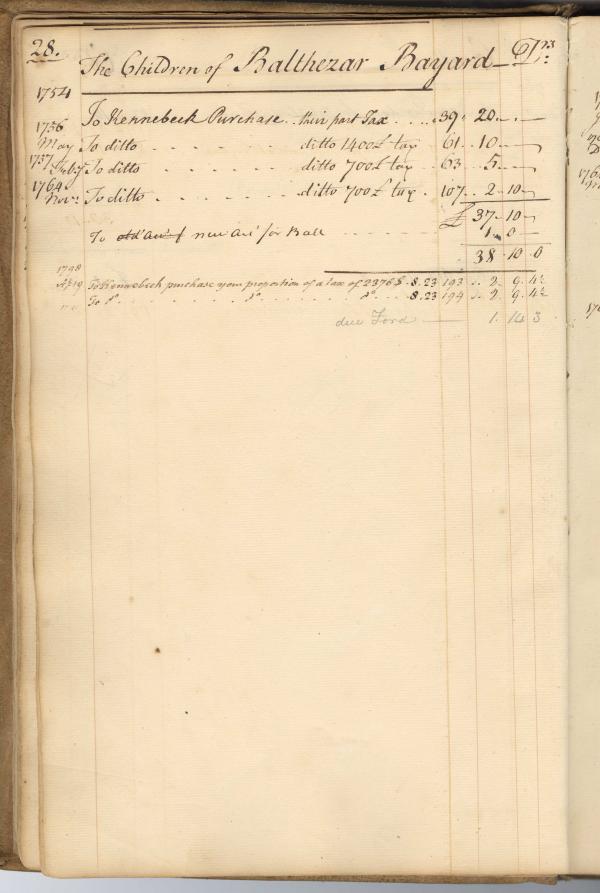 28.
The Children of Balthezar Bayard – Drs:
1754
To Kennebeck Purchase .. their part Tax . . . . 39 . 20 . – . –
1756
May To ditto . . . . . . . ditto 1400£ tax 61 . 10 . –
1757
Feby To ditto . . . . . . . ditto 700£ tax 63 . 5 . –
1764
Novr To ditto . . . . . . . ditto 700£ tax . 107 . 2 – 10 –
£ 37 – 10 –
To old acct new acct for Ball . . . . . . 1 . 0 –
38 . 10 . 0
1798
Ap 19 To Kennebeck purchase your proportion of a tax of 2376$ . 8.23 193 .. 2 . 9 . 4
To do . . . . . . . do . . . . . . do .. 8.23 194 .. 2 . 9 . 4
due Ford 1 . 14 3